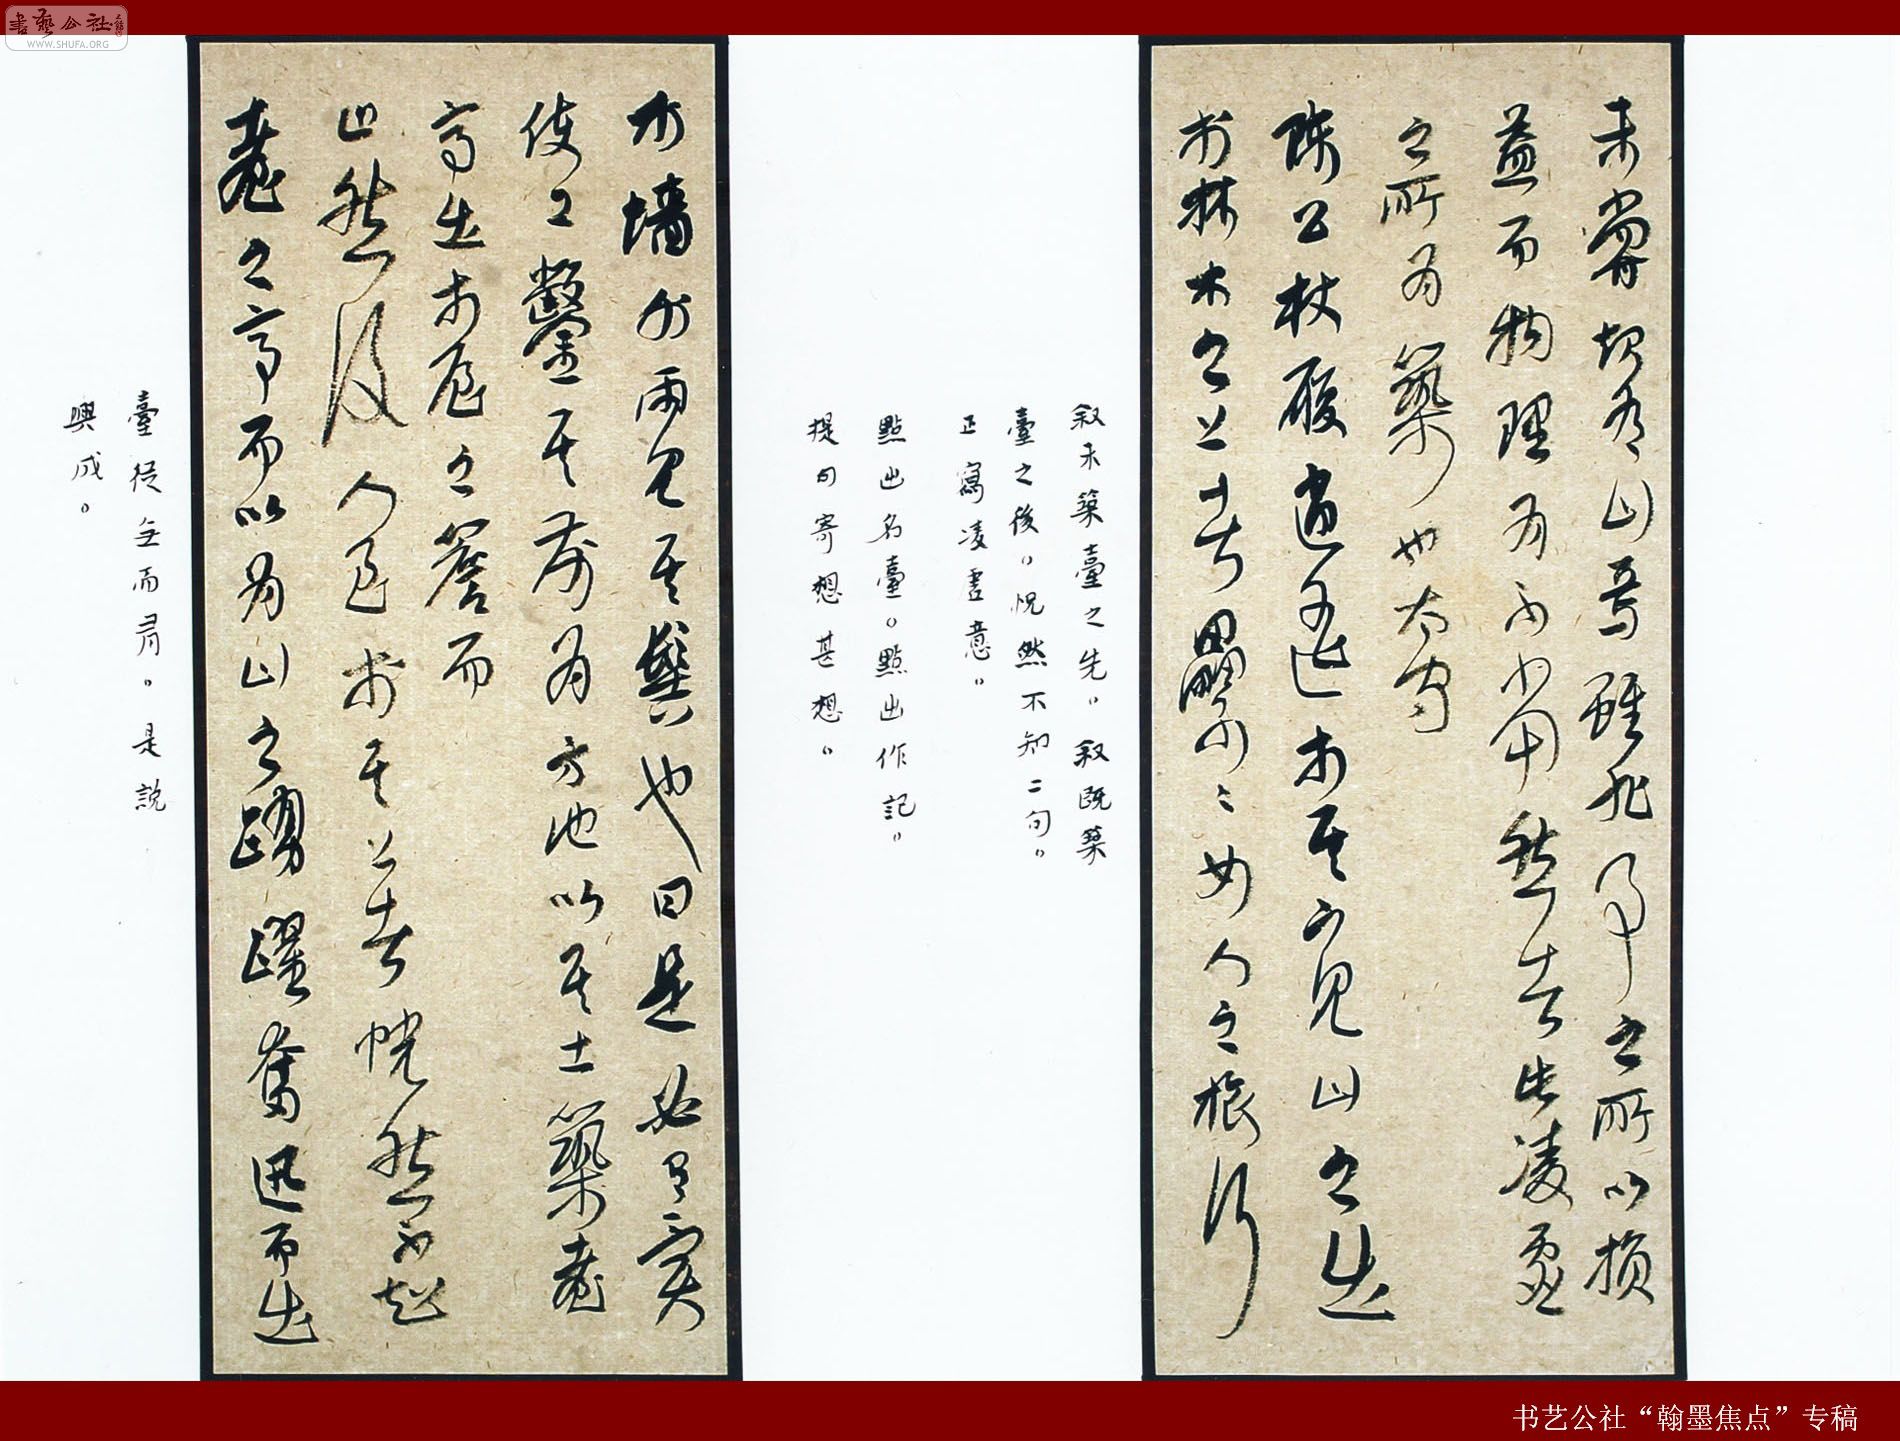 書藝公社
WWW.SHUFA.ORG
未嘗知有山焉雖非事之所以損
益而物理有不當然者此凌虛
之所為築也太守
陳公杖履逍遙於其下見山之出
於林木之上者纍々如人之旅行
叙未築臺之先。叙既築
臺之後。怳然不知二句。
正寫凌虛意。
點出名臺。點出作記。
提句寄想甚想。
於墻外而見其髻也曰是必有異
使工鑿其前為方池以其土築臺
高出於屋之簷而
止然後人之至於其上者恍然不知
臺之高而以為山之踴躍奮迅而出
臺從无而有。是說
興成。
书艺公社“翰墨焦点”专稿